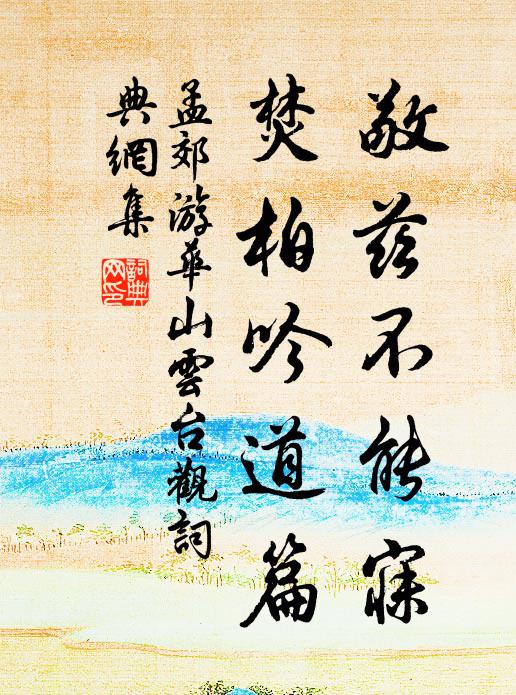 敬茲不能寐
焚柏吟道篇
孟郊游華山雲台觀詞
典網集
詞典
网印